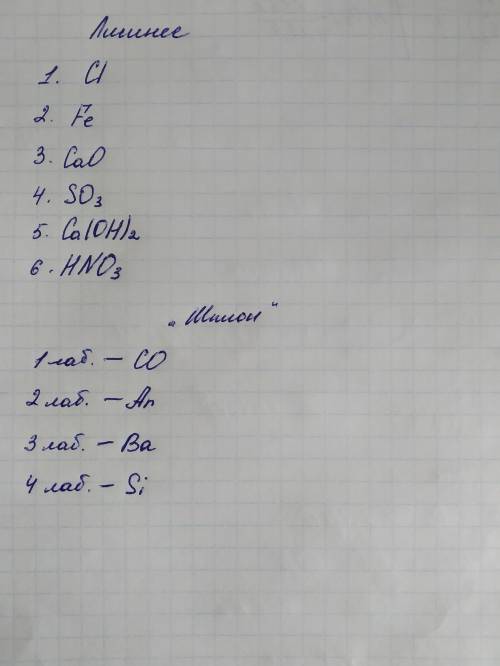 Лишнее
1. Cl
2. Fe
3. CaO
4. SO₃
5. Ca(OH)₂
6. HNO₃
„Шпион“
1 лаб. – CO
2 лаб. – An
3 лаб. – Ba
4 лаб. – Si